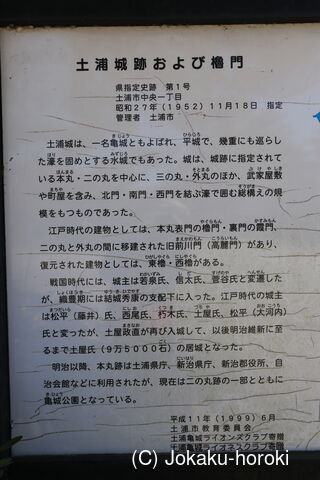 土浦城跡および櫓門
県指定史跡 第1号
土浦市中央一丁目
昭和27年(1952)11月18日 指定
管理者 土浦市
土浦城は、一名亀城ともよばれ、平城で、幾重にも巡らし
た濠を固めとする水城でもあった。城は、城跡に指定されて
いる本丸・二の丸を中心に、三の丸・外丸のほか、武家屋敷
や町屋を含み、北門・南門・西門を結ぶ濠で囲む総構えの規
模をもつものであった。
江戸時代の建物としては、本丸表門の櫓門・裏門の霞門、
二の丸と外丸の間に移建された旧前川門(高麗門)があり、
復元された建物としては、東櫓・西櫓がある。
戦国時代には、城主は若泉氏、信太氏、菅谷氏と変遷した
が、織豊期には結城秀康の支配下に入った。江戸時代の城主
は松平(藤井)氏、西尾氏、朽木氏、土屋氏、松平(大河内)
氏と変ったが、土屋政直が再び入城して、以後明治維新に至
るまで土屋氏(9万5000石)の居城となった。
明治以降、本丸跡は土浦県庁、新治県庁、新治郡役所、自
治会館などに利用されたが、現在は二の丸跡の一部とともに
亀城公園となっている。
平成11年(1999)6月
土浦市教育委員会
土浦亀城ライオンズクラブ寄贈
土浦亀城ライオネスクラブ寄贈
(C) Jokaku-horoki